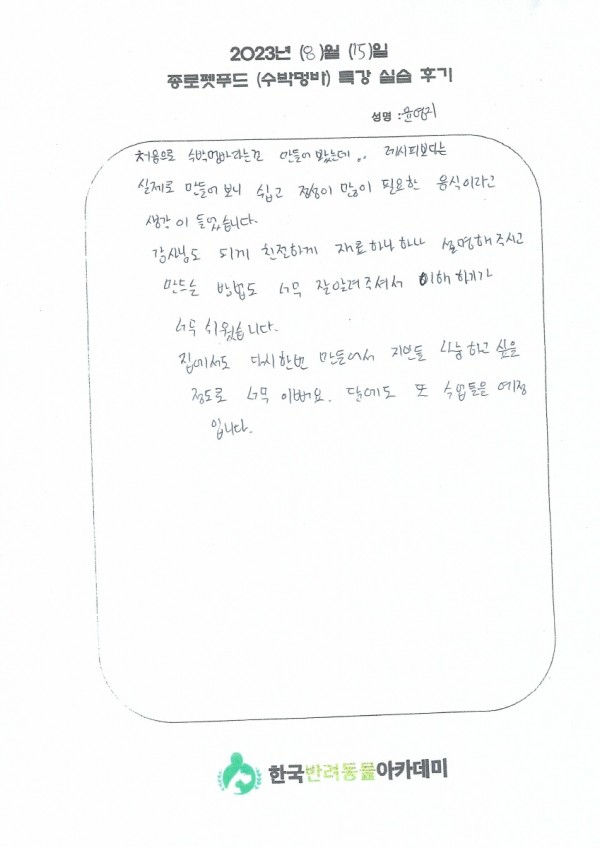 2023년 (8)월 (15)일
종로펫푸드 (수박멍바) 특강 실습 후기
성명 : 윤영지
처음으로 수박멍바라는걸 만들어 봤는데.. 레시피보다는
실제로 만들어 보니 쉽고 정성이 많이 필요한 음식이라고
생각이 들었습니다.
강사님도 되게 친절하게 재료하나하나 설명해주시고
만드는 방법도 너무 잘알려주셔서 이해하기가
너무 쉬웠습니다.
집에서도 다시한번 만들어서 지인들 나눔하고싶을
정도로 너무 이뻐요. 담에도 또 수업들을 예정
입니다.
한국반려동물아카데미